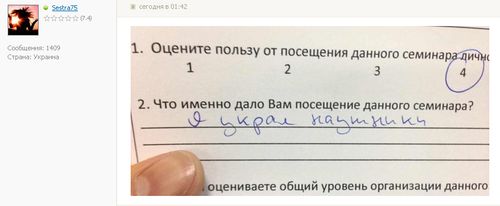 Sestra75
(7.4)
Сообщения: 1409
Страна: Украина
сегодня в 01:42
1. Оцените пользу от посещения данного семинара лично
1 2 3 4
2. Что именно дало Вам посещение данного семинара?
я украл наушники
оцениваете общий уровень организации данного